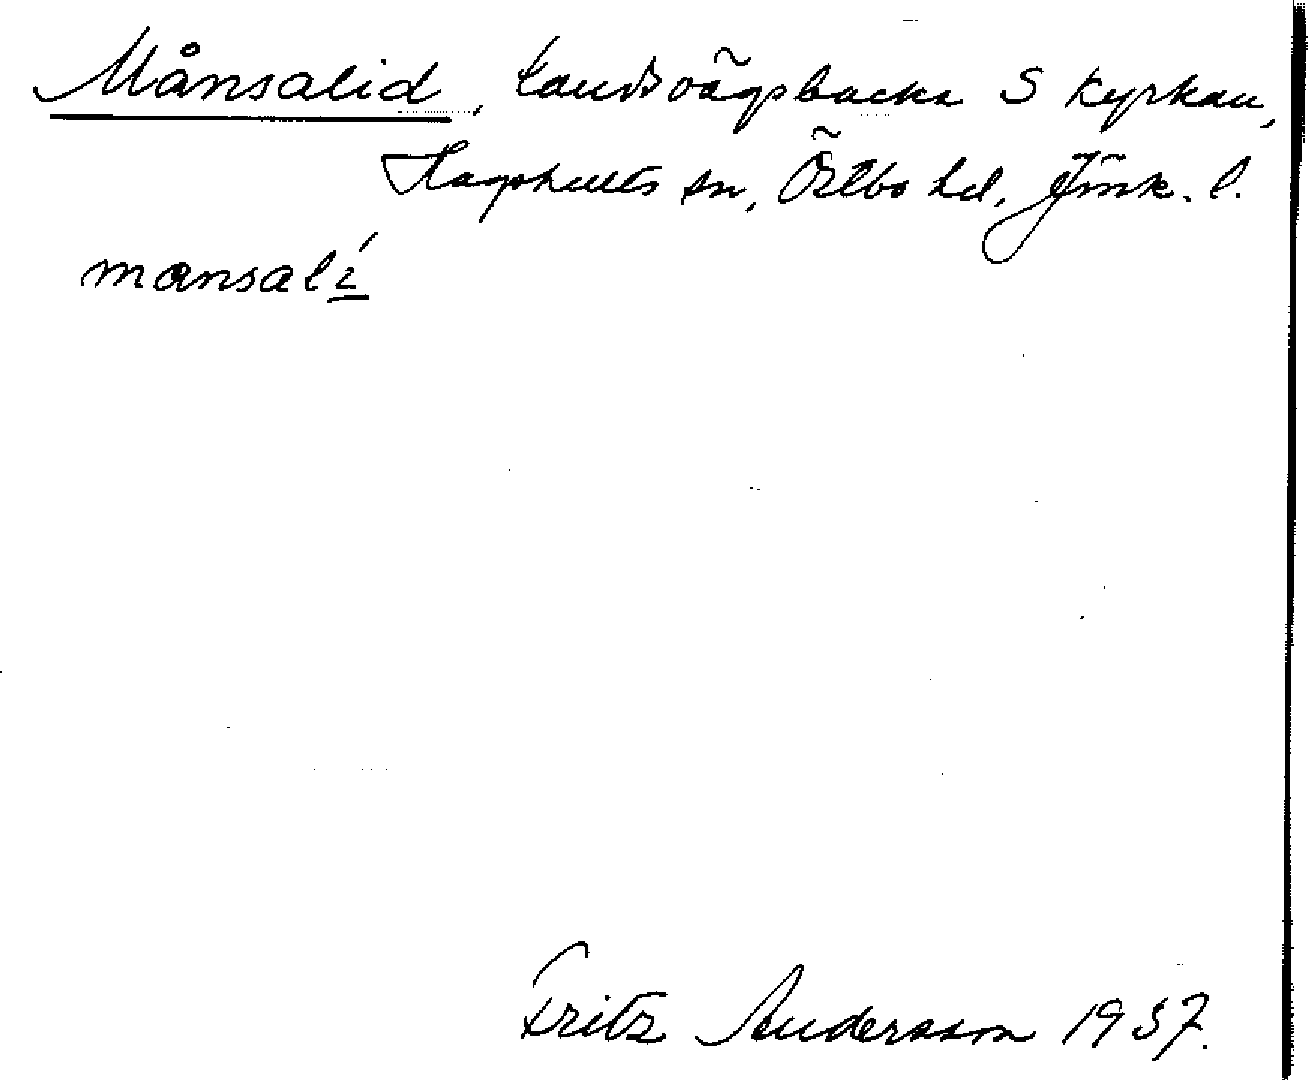 Månsalid, Landsvägsbacke S kyrkan,
Hagshults sn, Östbo hd, Jönk. l.
mansalí
Fritz Andersson 1937.